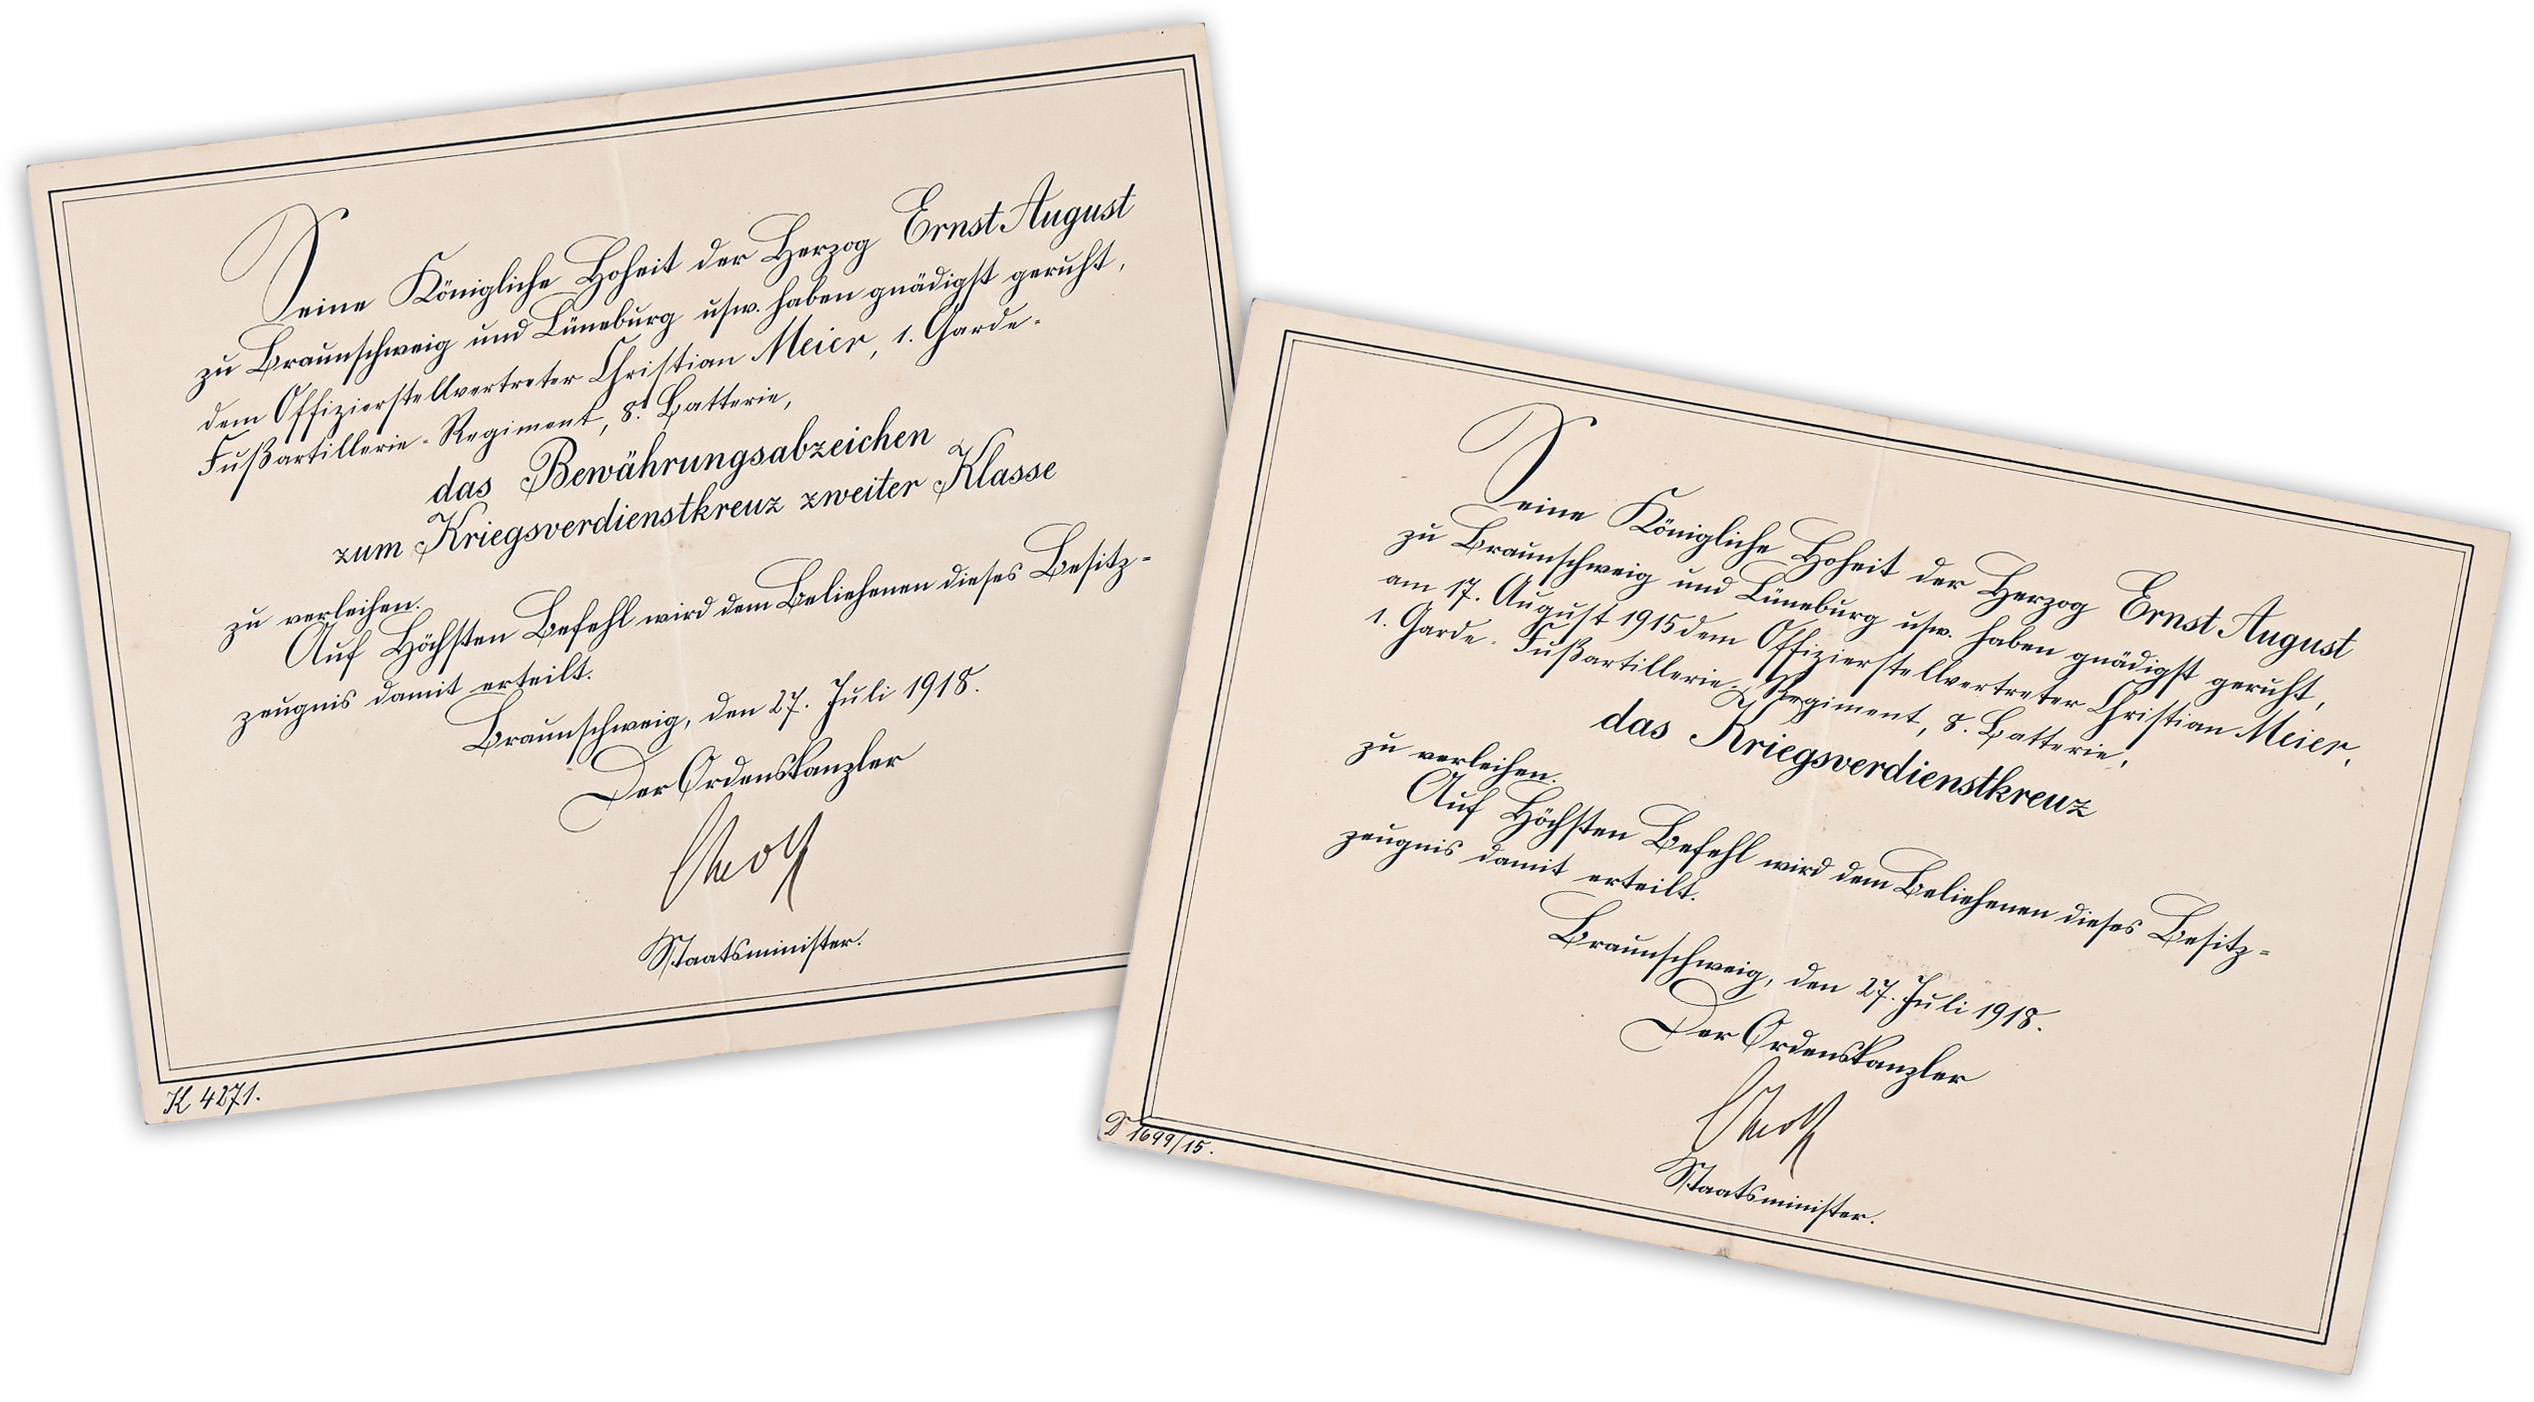 Seine Königliche Hoheit der Herzog Ernst August
zu Braunschweig und Lüneburg usw. haben gnädigst geruht,
dem Offizierstellvertreter Christian Meier, 1. Garde-
Fußartillerie-Regiment, 8. Batterie,
das Bewährungsabzeichen
zum Kriegsverdienstkreuz zweiter Klasse
zu verleihen.
Auf Höchsten Befehl wird dem Beliehenen dieses Besitz-
zeugnis damit erteilt.
Braunschweig, den 27. Juli 1918.
Der Ordenskanzler
Staatsminister.
K 4271.
Seine Königliche Hoheit der Herzog Ernst August
zu Braunschweig und Lüneburg usw. haben gnädigst geruht,
am 17. August 1915 dem Offizierstellvertreter Christian Meier,
1. Garde-Fußartillerie-Regiment, 8. Batterie,
das Kriegsverdienstkreuz
zu verleihen.
Auf Höchsten Befehl wird dem Beliehenen dieses Besitz-
zeugnis damit erteilt.
Braunschweig, den 27. Juli 1918.
Der Ordenskanzler
Staatsminister.
D 1699/15.